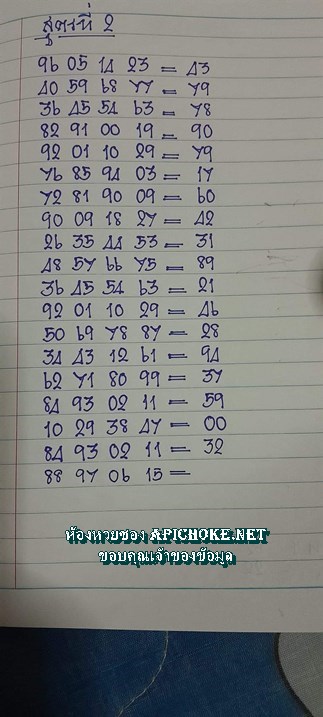 สูตรที่ 2
96 05 14 23 = 43
40 59 68 77 = 79
36 45 54 63 = 78
82 91 00 19 = 90
92 01 10 29 = 79
76 85 94 03 = 17
72 81 90 09 = 60
90 09 18 27 = 42
26 35 44 53 = 31
48 57 66 75 = 89
36 45 54 63 = 21
92 01 10 29 = 46
50 69 78 87 = 28
34 43 12 61 = 94
62 71 80 99 = 37
84 93 02 11 = 59
10 29 38 47 = 00
84 93 02 11 = 32
88 97 06 15 =
ห้องหวยซอง APICHOKE.NET
ขอบคุณเจ้าของข้อมูล